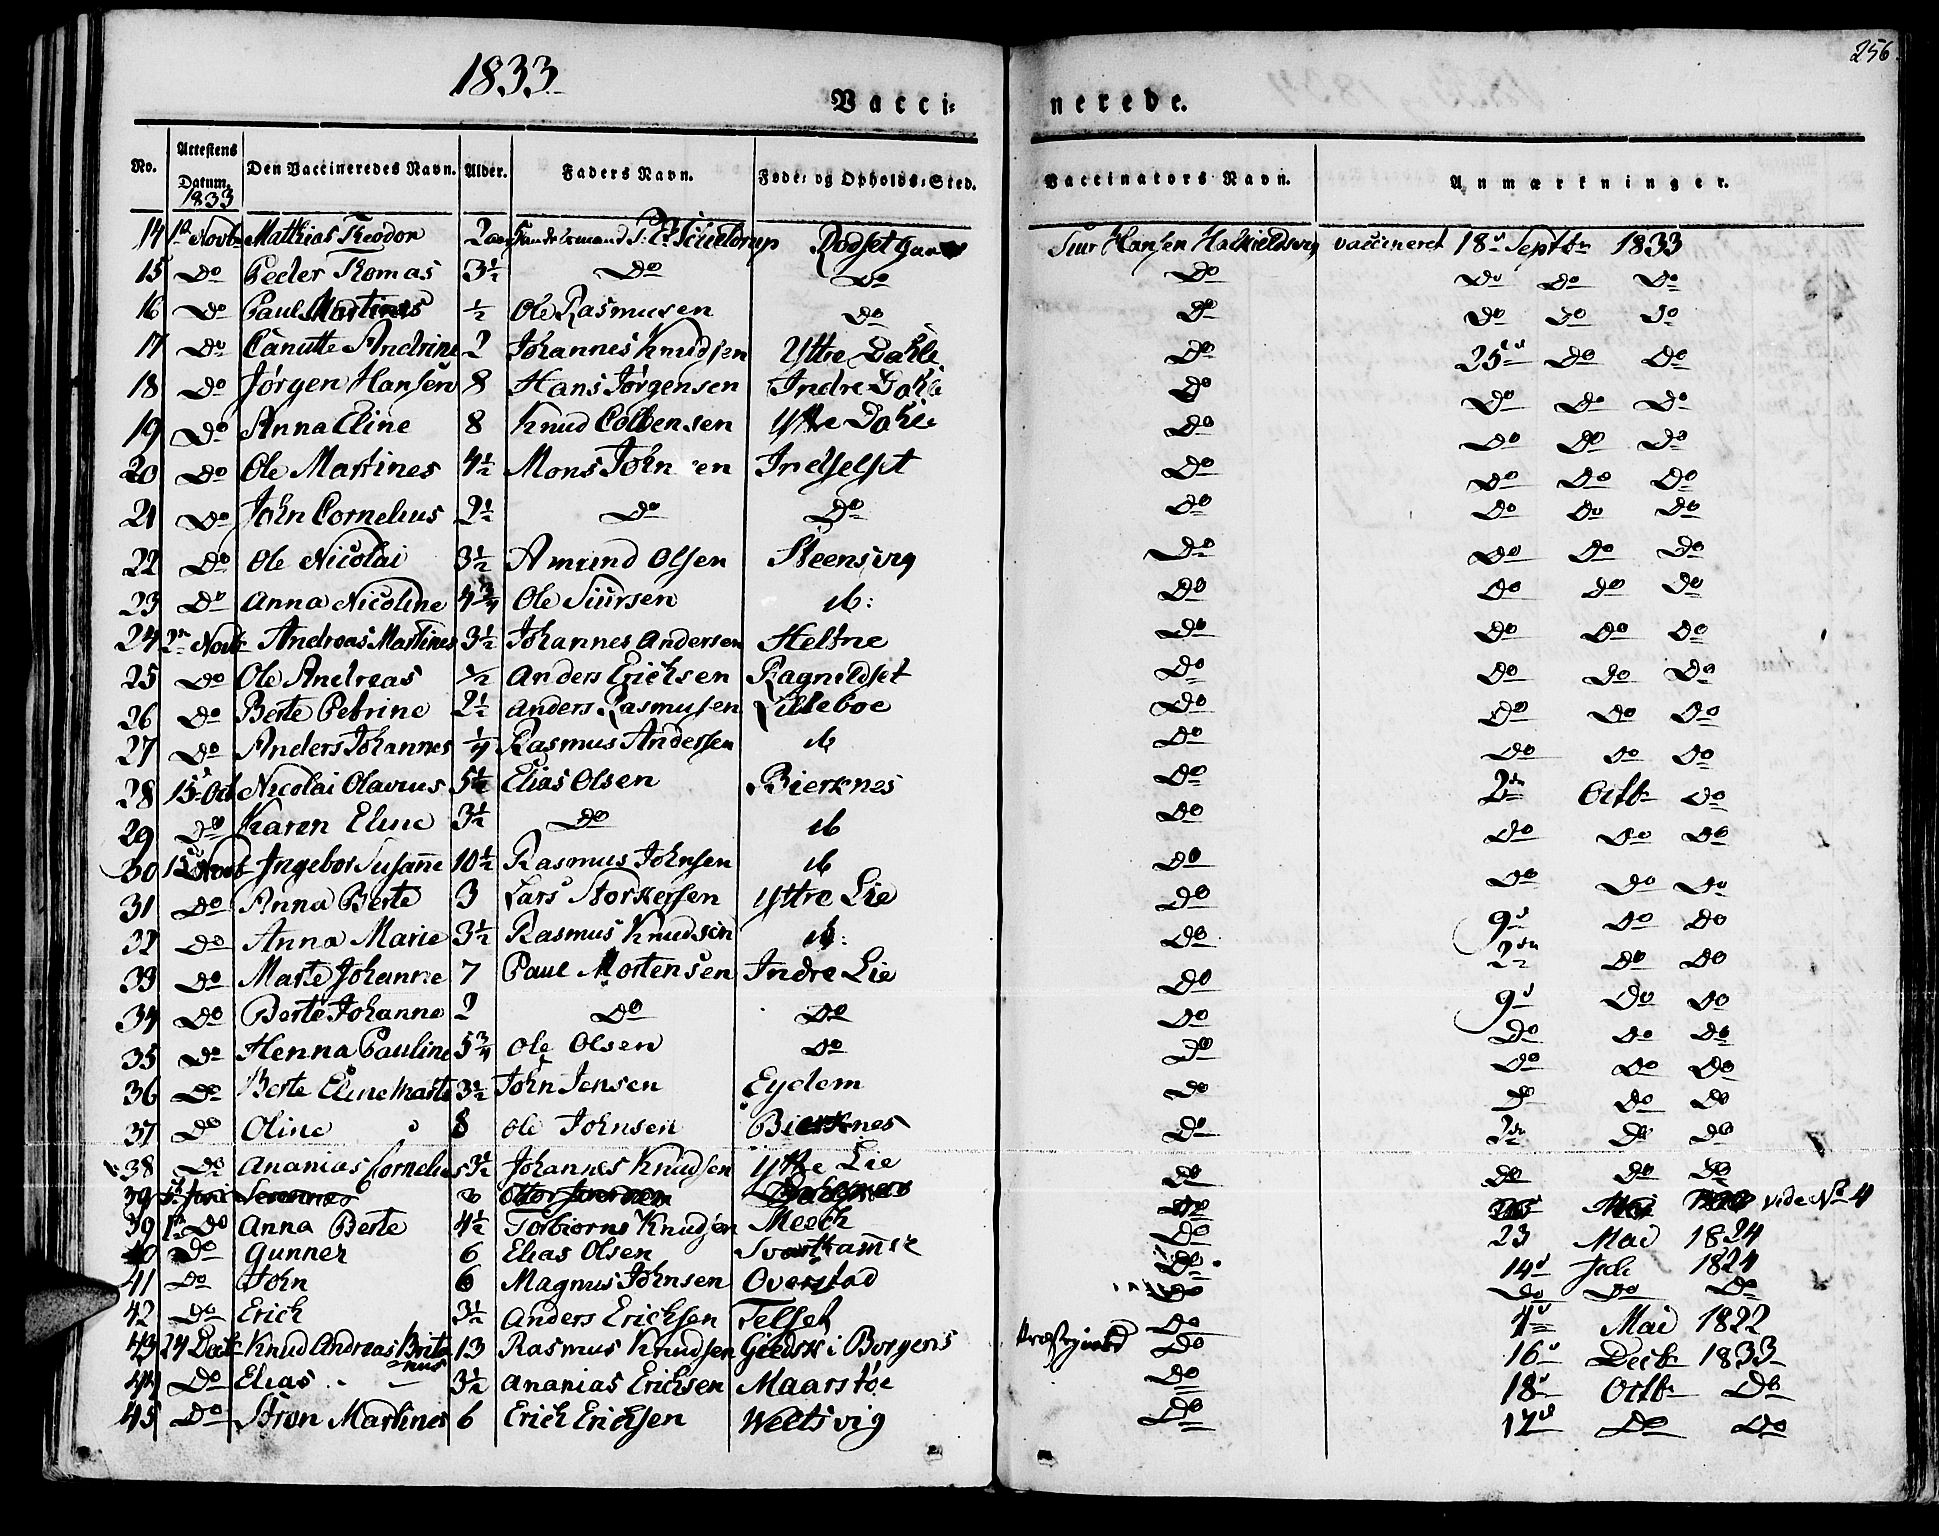 1833
256
Vacci: nerede.
No. Attestens Datum. 1833 Den Vaccineredes Navn. Alder. Faders Navn. Føde: og Opholds: Sted. Vaccinators Navn. Anmærkninger.
14 1ste Novbr Mathias Theodor 2 aar Rødset Siur Hansen vaccineret 18d Septbr 1833
15 Do Peder Thomas 3½ Do Do Do Do Do Do
16 Do Paul Martines ½ Ole Rasmusen Do Do Do Do Do
17 Do Canutte Andrine 2 Johannes Knudsen Yttre Dahle Do 25d Do Do
18 Do Jørgen Hansen 8 Hans Jørgensen Indre Dahle Do Do Do Do
19 Do Anna Eline 8 Knud Colbensen Yttre Dahle Do Do Do Do
20 Do Ole Martines 4½ Mons John en Indselset Do Do Do Do
21 Do John Cornelius 2½ Do Do Do Do Do Do
22 Do Ole Nicolai 3½ Amund Olsen Steensvig Do Do Do Do
23 Do Anna Nicoline 4¾ Ole Siursen ib: Do Do Do Do
24 2n Novb Andreas Martines 3½ Johannes Andersen Heltne Do Do Do Do
25 Do Ole Andreas ½ Anders Erichsen Ragnildset Do Do Do Do
26 Do Berte Petrine 2½ Anders Rasmusen Lilleboe Do Do Do Do
27 Do Anders Johannes ¼ Rasmus Andersen ib Do Do Do Do
28 15 Oct Nicolai Olavius 5½ Elias Olsen Bierknes Do 2den Octb Do
29 Do Karen Eline 3½ Do ib Do Do Do Do
30 15 Novb Ingebor Susanne 10½ Rasmus Johnsen ib Do Do Do Do
31 Do Anna Berte 3 Lars Storkersen Yttre Lie Do 9d Do Do
32 Do Anna Marie 3½ Rasmus Knudsen ib: Do 2den Do Do
33 Do Marte Johanne 7 Paul Mortensen Indre Lie Do 9d Do Do
34 Do Berte Johanne 2 Do Do Do Do Do Do
35 Do Henna Pauline 5¾ Ole Olsen Do Do Do Do Do
36 Do Berte Eline Marte 3½ John Jensen Eydem Do Do Do Do
37 Do Oline 8 Ole Johnsen Bierknes Do 2den Do Do
38 Do Ananias Cornelius 3½ Johannes Knudsen Yttre Lie Do Do Do Do
39 Do vide No 4
39 1ste Do Anna Berte 4½ Torbiorns Knudsen Meech Do 23 Mai 1824
40 Do Gunner 6 Elias Olsen Do 14d 1824
41 Do John 6 Magnus Johnsen Overstad Do Do Do Do
42 Do Erich 3½ Anders Erichsen Telset Do 4d Mai 1822
43 24 Dec Knud Andreas Britanus 13 Rasmus Knudsen Giedsk i Borgens Præstgield Do 16d Decb 1833
44 Do Elias 3½ Ananias Erichsen Maarstøe Do 18d Octb Do
45 Do Søren Martines 6 Erich Erichsen Weltsvig Do 12d Do Do